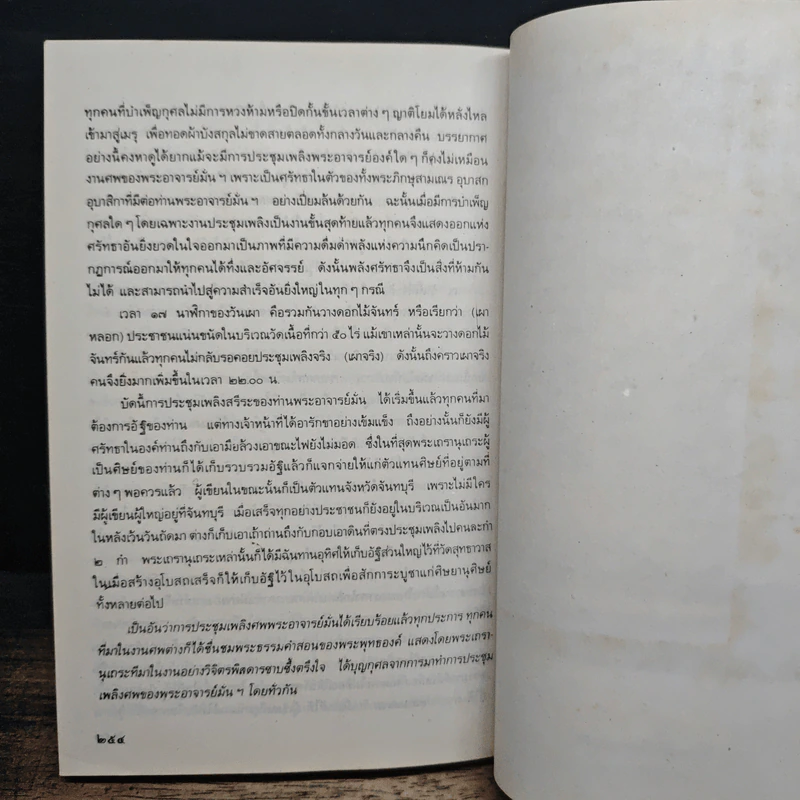 ทุกคนที่บำเพ็ญกุศลไม่มีการหวงห้ามหรือปิดกั้นชั้นเวลาต่าง ๆ ญาติโยมได้หลั่งไหล
เข้ามาสู่เมรุ เพื่อทอดผ้าบังสกุลไม่ขาดสายตลอดทั้งกลางวันและกลางคืน บรรยากาศ
อย่างนี้คงหาดูได้ยากแม้จะมีการประชุมเพลิงพระอาจารย์องค์ใด ๆ ก็คงไม่เหมือน
งานศพของพระอาจารย์มั่น ฯ เพราะเป็นศรัทธาในตัวของทั้งพระภิกษุสามเณร อุบาสก
อุบาสิกาที่มีต่อท่านพระอาจารย์มั่น ฯ อย่างเปี่ยมล้นด้วยกัน ฉะนั้นเมื่อมีการบำเพ็ญ
กุศลใด ๆ โดยเฉพาะงานประชุมเพลิงเป็นงานขั้นสุดท้ายแล้วทุกคนจึงแสดงออกแห่ง
ศรัทธาอันยิ่งยวดในใจออกมาเป็นภาพที่มีความดื่มด่ำพลังแห่งความนึกคิดเป็นปรา-
กฏการณ์ออกมาให้ทุกคนได้ทึ่งและอัศจรรย์ ดังนั้นพลังศรัทธาจึงเป็นสิ่งที่ห้ามกัน
ไม่ได้ และสามารถนำไปสู่ความสำเร็จอันยิ่งใหญ่ในทุก ๆ กรณี
เวลา ๑๗ นาฬิกาของวันเผา คือรวมกันวางดอกไม้จันทร์ หรือเรียกว่า (เผา
หลอก) ประชาชนแน่นขนัดในบริเวณวัดเนื้อที่กว่า ๕๐ ไร่ แม้เขาเหล่านั้นจะวางดอกไม้
จันทร์กันแล้วทุกคนไม่กลับรอคอยประชุมเพลิงจริง (เผาจริง) ดังนั้นถึงคราวเผาจริง
คนจึงยิ่งมากเพิ่มขึ้นในเวลา ๒๒.๐๐ น.
บัดนี้การประชุมเพลิงสรีระของท่านพระอาจารย์มั่น ได้เริ่มขึ้นแล้วทุกคนที่มา
ต้องการอัฐิของท่าน แต่ทางเจ้าหน้าที่ได้อารักขาอย่างเข้มแข็ง ถึงอย่างนั้นก็ยังมีผู้
ศรัทธาในองค์ท่านถึงกับเอามือล้วงเอาขณะไฟยังไม่มอด ซึ่งในที่สุดพระเถรานุเถระผู้
เป็นศิษย์ของท่านก็ได้เก็บรวบรวมอัฐิแล้วก็แจกจ่ายให้แก่ตัวแทนศิษย์ที่อยู่ตามที่
ต่าง ๆ พอควรแล้ว ผู้เขียนในขณะนั้นก็เป็นตัวแทนจังหวัดจันทบุรี เพราะไม่มีใคร
มีผู้เขียนผู้ใหญ่อยู่ที่จันทบุรี เมื่อเสร็จทุกอย่างประชาชนก็ยังอยู่ในบริเวณเป็นอันมาก
ในหลังเว้นวันถัดมา ต่างก็เก็บเอาเถ้าถ่านถึงกับกอบเอาดินที่ตรงประชุมเพลิงไปคนละกำ
๒ กำ พระเถรานุเถระเหล่านั้นก็ได้มีฉันทานุอุทิศให้เก็บอัฐิส่วนใหญ่ไว้ที่วัดสุทธาวาส
ในเมื่อสร้างอุโบสถเสร็จก็ให้เก็บอัฐิไว้ในอุโบสถเพื่อสักการะบูชาแก่ศิษยานุศิษย์
ทั้งหลายต่อไป
เป็นอันว่าการประชุมเพลิงศพพระอาจารย์มั่นได้เรียบร้อยแล้วทุกประการ ทุกคน
ที่มาในงานศพต่างก็ได้ชื่นชมพระธรรมคำสอนของพระพุทธองค์ แสดงโดยพระเถรา-
นุเถระที่มาในงานอย่างวิจิตรพิสดารซาบซึ้งตรึงใจ ได้บุญกุศลจากการมาทำการประชุม
เพลิงศพของพระอาจารย์มั่น ฯ โดยทั่วกัน
๒๕๔